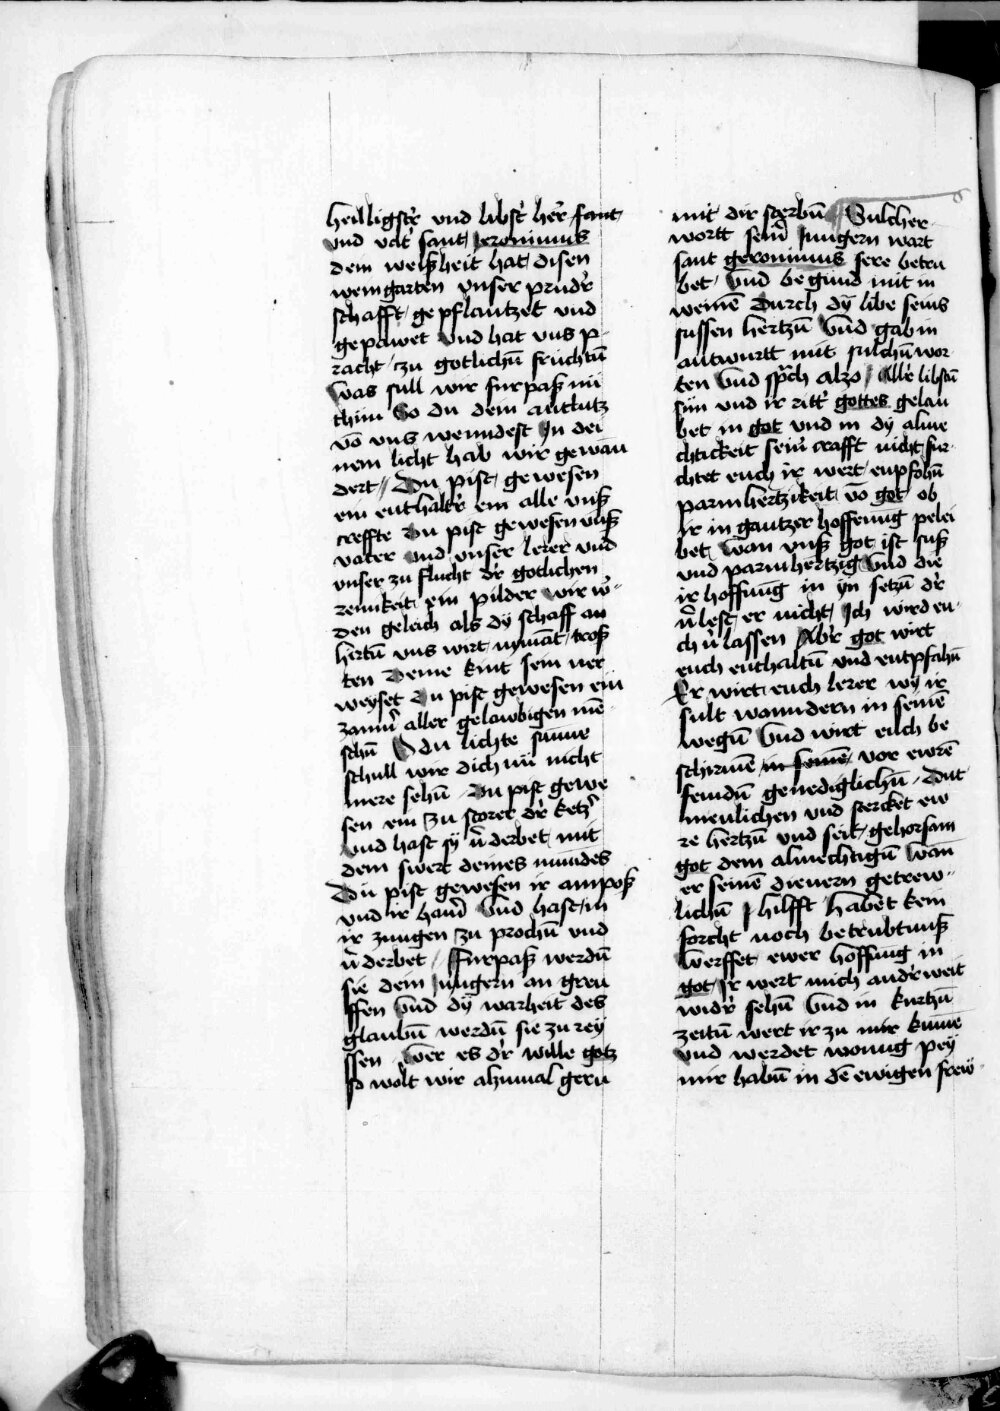 heilligstr̄ vnd libst̄ her̄ sant
vnd vat̄ sant Jeronimus
dem weisheit hat disen
weingarten vnser prudr̄
schafft gepflantzet vnd
gepawet vnd hat vns p
racht zu gotlichn̄ fruchtn̄
was sull wir furpaß nū
thun So du dein antlutz
vō vns wenndest In dei
nem licht hab wir gewan̄
dert Du pist gewesen
ein enthaltr̄ ein alle vnß
creffte Du pist gewesen vnß
vater vnd vnser lerer vnd
vnser zu flucht dr̄ gotlichen
reinikeit ein pilder wir w̄
den geleich als dÿ schaff an
hertn̄ vns wirt nÿmāt tros
ten Deine kint sein ver
weyset Du pist gewesen ein
zamn̄ aller gelawbigen mē
schn̄ O du lichte sunne
schull wir dich nū nicht
mere sehn̄ Du pist gewe
sen ein zu storer dr̄ ketzr̄
vnd hast sÿ v̄derbet mit
dem swert deines mundes
Du pist gewesen ir ampoß
vnd ir ham̄ Vnd hast in
ir zungen zu prochn̄ vnd
v̄derbet Furpaß werdn̄
sie dein Jungern an greu
ffen Vnd dÿ warheit des
glaubn̄ werdn̄ sie zu rey
ssen Wer es dr̄ wille gotz
so wolt wir alzumal gern
mit dir sterbn̄ Sulcher
wortt sein̄ Jungern wart
sant geronimus sere betru
bet Vnd begund mit in
weinē Durch dÿ libe seins
sussen hertzn̄ Vnd gab in
antwurtt mit sulchn̄ wor
ten Vnd sp̄ch alzo Allr̄ libstn̄
sun vnd ir rittr̄ gottes gelau
bet in got vnd in dÿ alme
chtickeit sein̄ crafft nicht fur
chtet euch ir wert enpfohn̄
parmhertzikeit vō got ob
ir in gantzer hoffenung pelei
bet wan vnß got ist suß
vnd parmhertzig Vnd die
ir hoffung in ÿn setzn̄ dr̄
v̄lest er nicht Ich wird eu
ch v̄lassen Abr̄ got wirt
euch enthaltn̄ vnd entpfahn̄
Er wirt euch lerer wÿ ir
sult wanndern in seinē
wegn̄ Vnd wirt euch be
schirmē in seinē vor ewrē
feindn̄ genediglichn̄ Dut
menlichen vnd sterckt ew
re hertzn̄ vnd seit gehorsam
got dem almechtign̄ Wan
er seinē dienern getrew
lichn̄ hilfft habet kein
forcht noch betrubtnuß
Werffet ewer hoffung in
got Ir wert mich andr̄weit
widr̄ sehn̄ Vnd in kurtzn̄
zeitn̄ wert ir zu mir kumē
vnd werdet wonung pey
mir habn̄ in dē ewigen frew